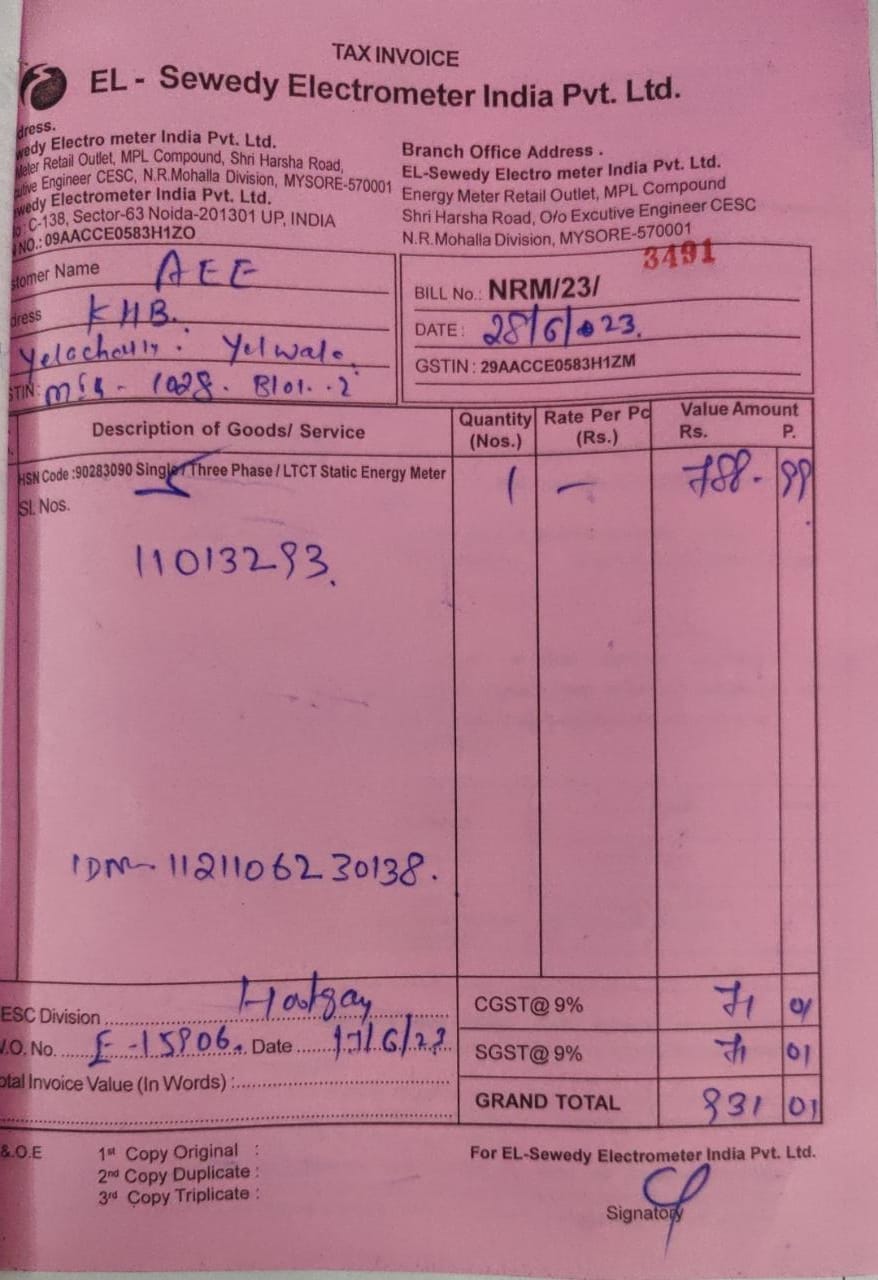 TAX INVOICE
EL - Sewedy Electrometer India Pvt. Ltd.
dress.
wedy Electro meter India Pvt. Ltd.
Meter Retail Outlet, MPL Compound, Shri Harsha Road,
utive Engineer CESC, N.R.Mohalla Division, MYSORE-570001
wedy Electrometer India Pvt. Ltd.
C-138, Sector-63 Noida-201301 UP, INDIA
NO.: 09AACCE0583H1ZO
Branch Office Address .
EL-Sewedy Electro meter India Pvt. Ltd.
Energy Meter Retail Outlet, MPL Compound
Shri Harsha Road, O/o Excutive Engineer CESC
N.R.Mohalla Division, MYSORE-570001
stomer Name AEE
dress KHB.
Yelwala.
STIN:
3491
BILL No.: NRM/23/
DATE : 28/6/23.
GSTIN : 29AACCE0583H1ZM
Description of Goods/ Service
Quantity (Nos.)
Rate Per Pc (Rs.)
Value Amount
Rs. P.
HSN Code :90283090 Single / Three Phase / LTCT Static Energy Meter 1 — 788. 99
Sl. Nos.
11013293.
11211062 30138.
ESC Division
.O. No. E-15906. Date 17/6/23
otal Invoice Value (In Words) :
CGST@ 9% 71 01
SGST@ 9% 71 01
GRAND TOTAL 931 01
&.O.E
1st Copy Original :
2nd Copy Duplicate :
3rd Copy Triplicate :
For EL-Sewedy Electrometer India Pvt. Ltd.
Signatory